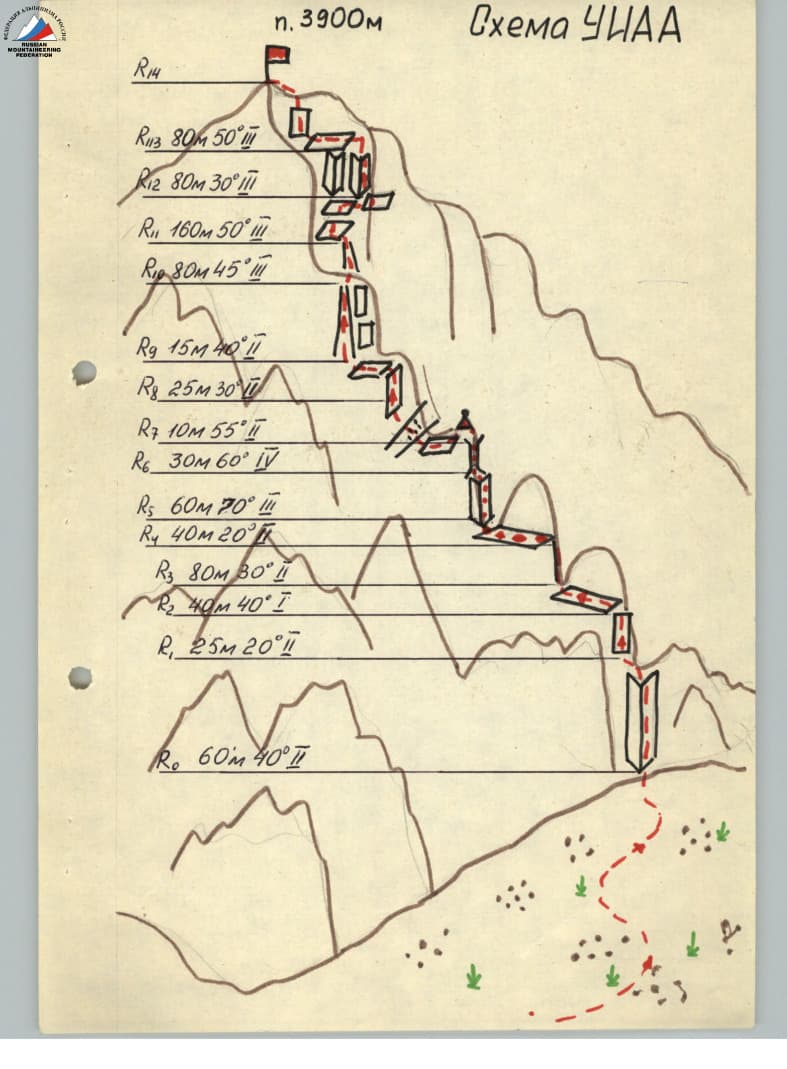 ФЕДЕРАЦИЯ АЛЬПИНИЗМА РОССИИ
RUSSIAN
MOUNTAINEERING
FEDERATION
п. 3900м
Схема УИАА
R14
R113 80м 50° III
R12 80м 30° III
R11 160м 50° III
R10 80м 45° III
R9 15м 40° II
R8 25м 30° II
R7 10м 55° II
R6 30м 60° IV
R5 60м 70° III
R4 40м 20° II
R3 80м 30° II
R2 40м 40° I
R1 25м 20° II
R0 60м 40° II